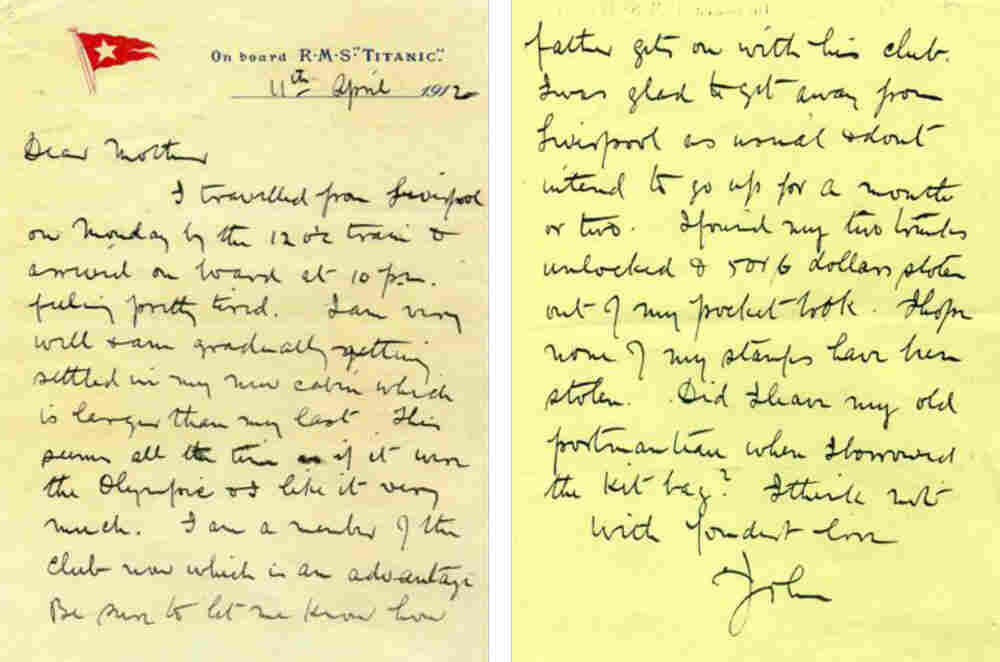 On board R·M·S "TITANIC".
11th April 1912
Dear Mother
I travelled from Liverpool
on Monday by the 12 o'c train &
arrived on board at 10 p.m.
feeling pretty tired. I am very
well & am gradually getting
settled in my new cabin which
is larger than my last. This
seems all the time as if it were
the Olympic & I like it very
much. I am a member of the
club now which is an advantage
Be sure to let me know how
father gets on with his club.
I was glad to get away from
Liverpool as usual & dont
intend to go up for a month
or two. I found my two trunks
unlocked & 5 or 6 dollars stolen
out of my pocket book. I hope
none of my stamps have been
stolen. Did I leave my old
portmanteau when I borrowed
the kit bag? I think not
With fondest love
John